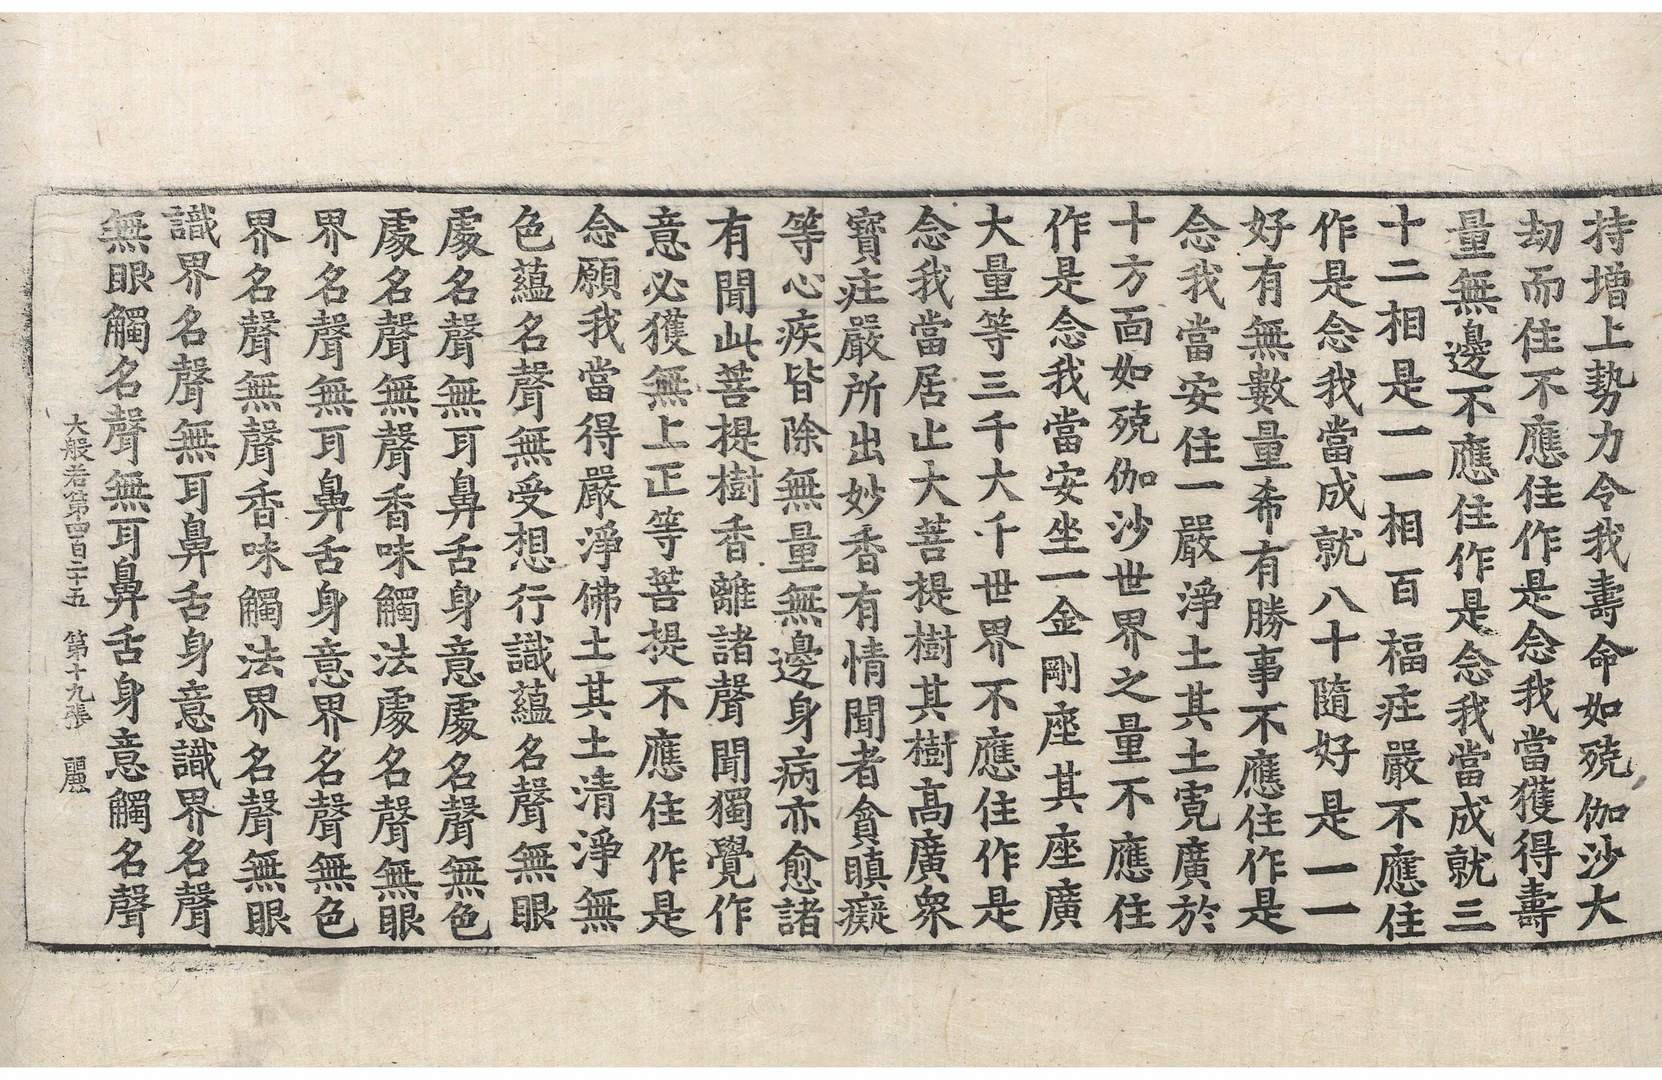 持增上勢力令我壽命如殑伽沙大
劫而住不應住作是念我當獲得壽
量無邊不應住作是念我當成就三
十二相是一一相百福庄嚴不應住
作是念我當成就八十隨好是一一
好有無數量希有勝事不應住作是
念我當安住一嚴淨土其土寬廣於
十方面如殑伽沙世界之量不應住
作是念我當安坐一金剛座其座廣
大量等三千大千世界不應住作是
念我當居止大菩提樹其樹高廣衆
寶庄嚴所出妙香有情聞者貪瞋癡
等心疾皆除無量無邊身病亦愈諸
有聞此菩提樹香離諸聲聞獨覺作
意必獲無上正等菩提不應住作是
念願我當得嚴淨佛土其土清淨無
色蘊名聲無受想行識蘊名聲無眼
處名聲無耳鼻舌身意處名聲無色
處名聲無聲香味觸法處名聲無眼
界名聲無耳鼻舌身意界名聲無色
界名聲無聲香味觸法界名聲無眼
識界名聲無耳鼻舌身意識界名聲
無眼觸名聲無耳鼻舌身意觸名聲
大般若第四百二十五　第十九張　麗